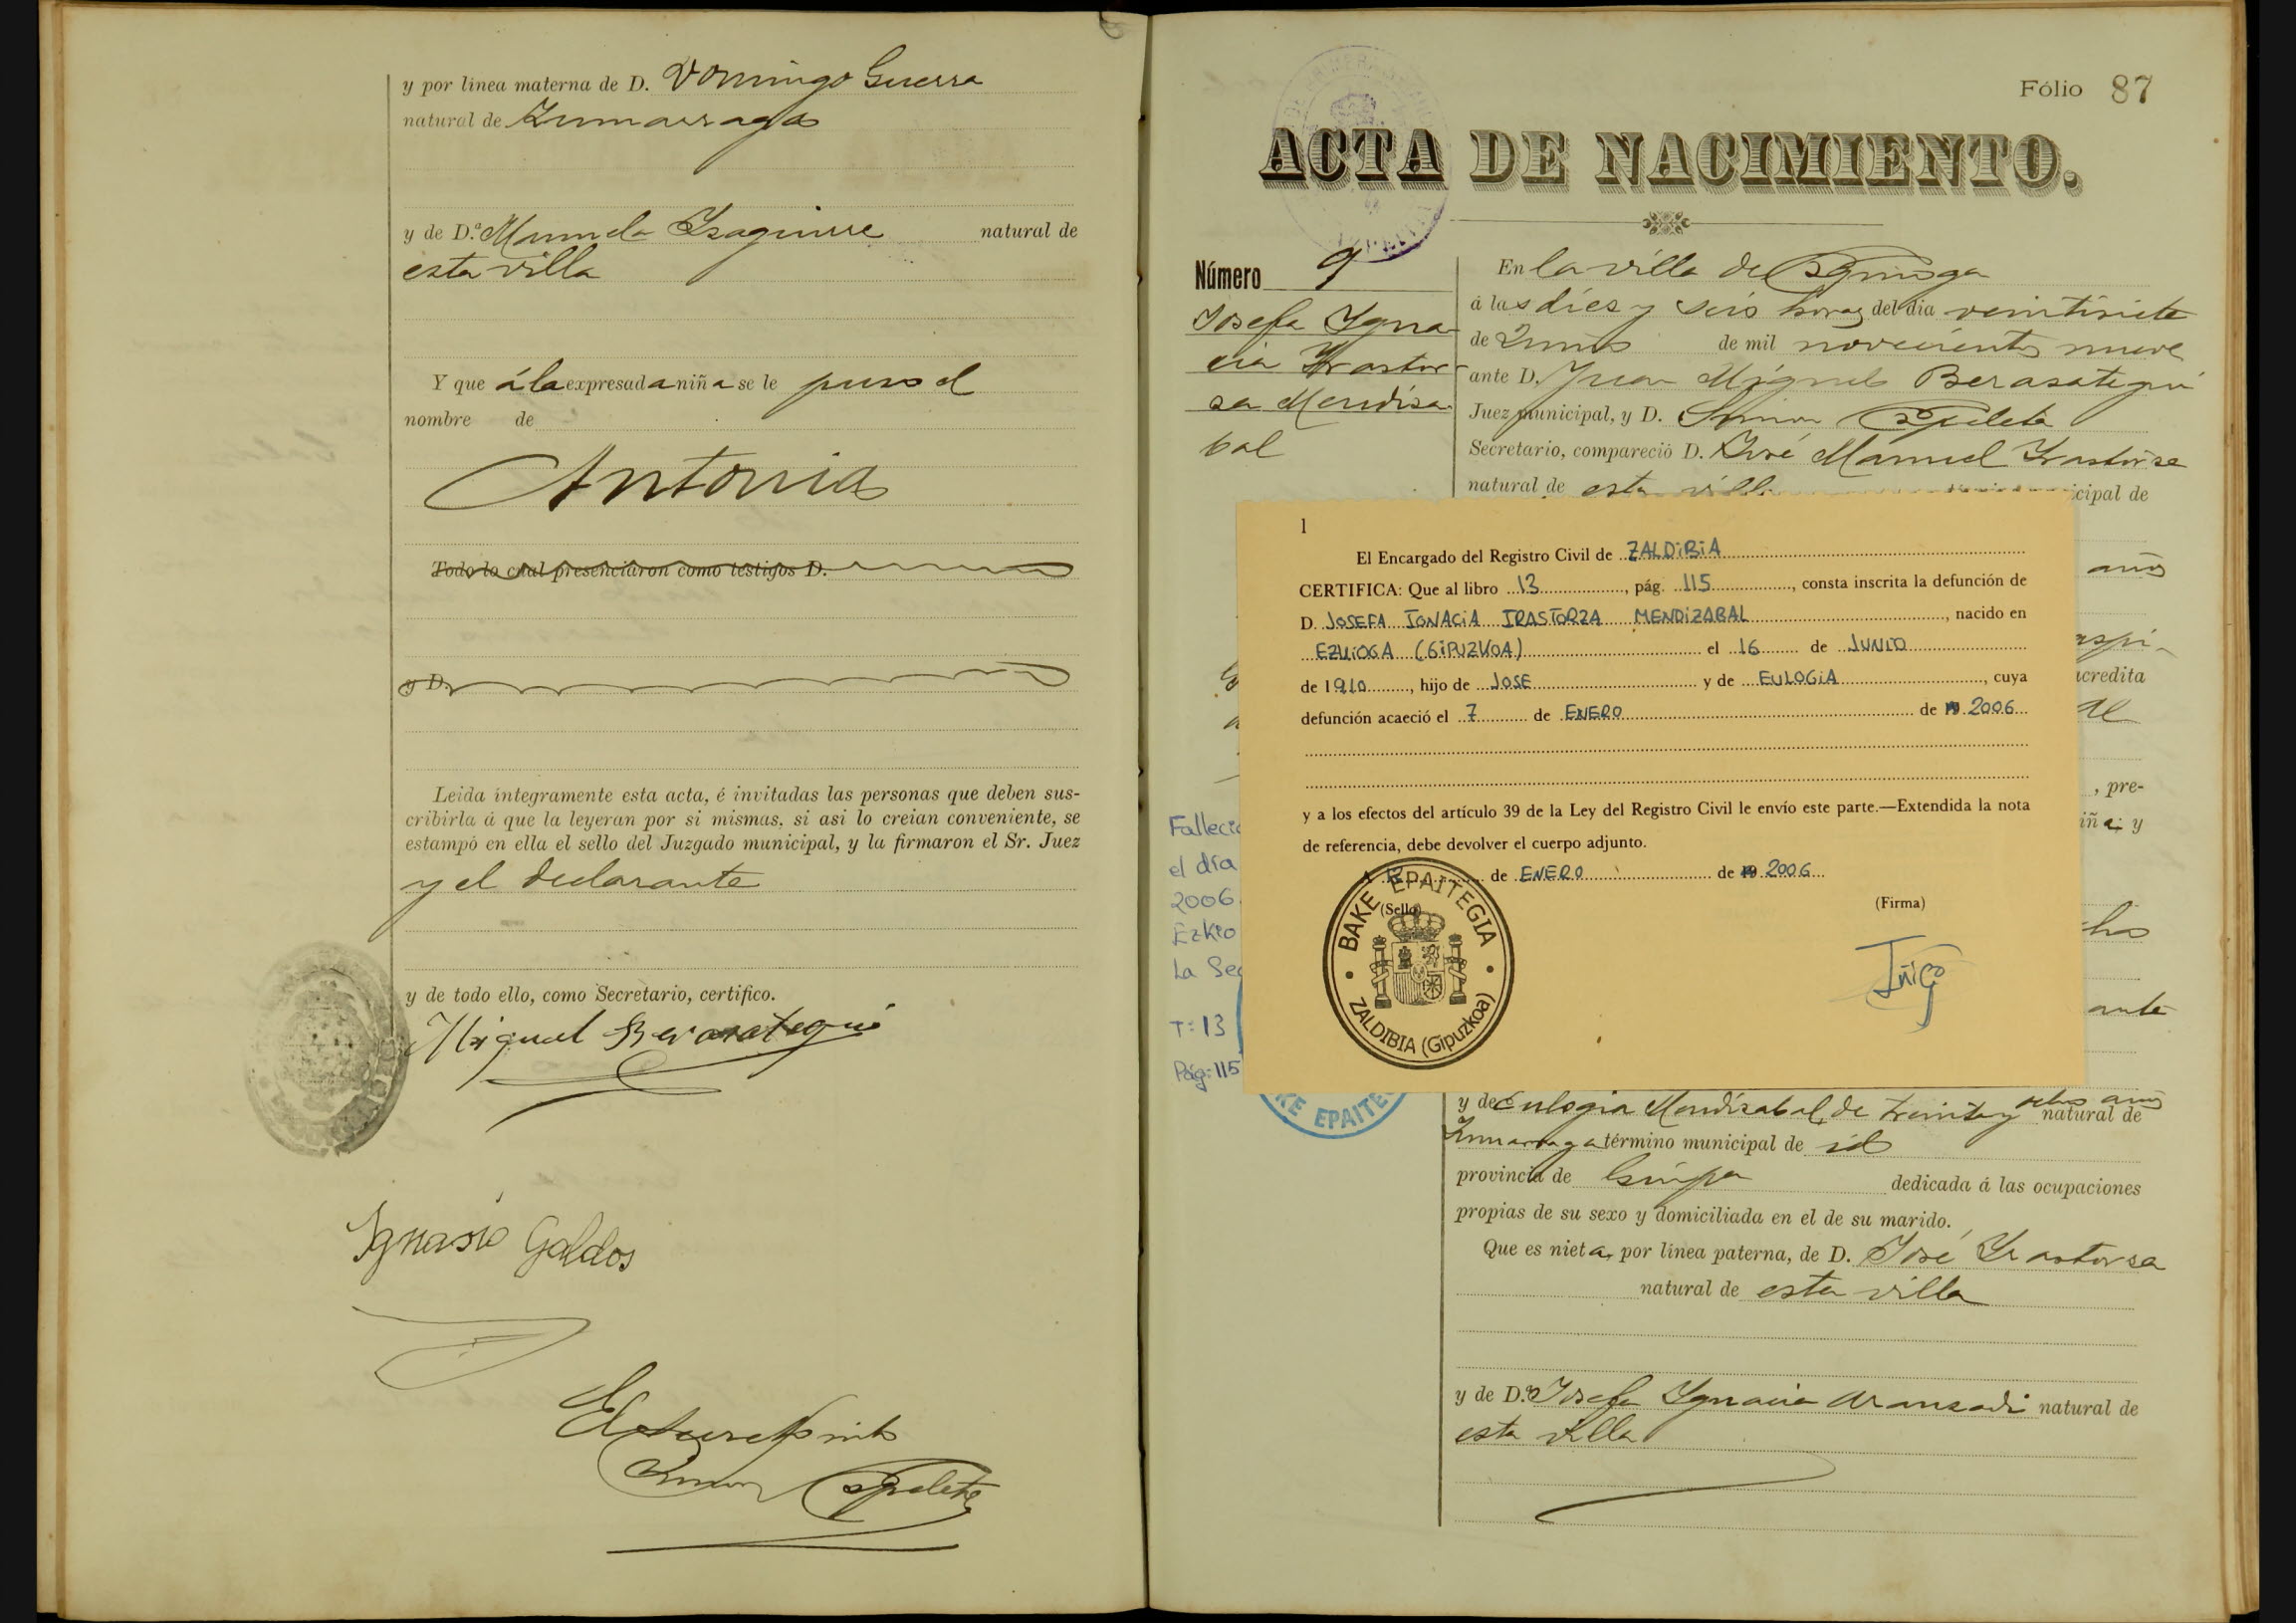 y por línea materna de D. Domingo Guerra
natural de Zumarraga
y de D.ª Manuela Izaguirre natural de
esta villa
Y que á la expresada niña se le puso el
nombre de
Antonia
Todo lo cual presenciaron como testigos D.
y D.
Leida íntegramente esta acta, é invitadas las personas que deben sus-
cribirla á que la leyeran por sí mismas, si así lo creian conveniente, se
estampó en ella el sello del Juzgado municipal, y la firmaron el Sr. Juez
y el declarante
y de todo ello, como Secretario, certifico.
Miguel Berasategui
Ignasio Galdos
Simon Eguileta
Fólio 87
ACTA DE NACIMIENTO.
Número 9
Josefa Ygna-
cia Yrastor-
sa Mendisa-
bal
En la villa de Ezquioga
á las diez y seis horas del dia veintisiete
de Junio de mil novecientos nueve
ante D. Juan Miguel Berasategui
Juez municipal, y D. Simon Eguileta
Secretario, compareció D. José Manuel Yrastorsa
natural de esta villa icipal de
años
acredita
, pre-
iña; y
ante
1
El Encargado del Registro Civil de ZALDIBIA
CERTIFICA: Que al libro 13, pág. 115, consta inscrita la defunción de
D. JOSEFA IGNACIA IRASTORZA MENDIZABAL, nacido en
EZKIOGA (GIPUZKOA) el 16 de JUNIO
de 1910, hijo de JOSE y de EULOGIA, cuya
defunción acaeció el 7 de ENERO de 19 2006
y a los efectos del artículo 39 de la Ley del Registro Civil le envío este parte.—Extendida la nota
de referencia, debe devolver el cuerpo adjunto.
de ENERO de 19 2006
(Sello)
(Firma)
BAKE EPAITEGIA
ZALDIBIA (Gipuzkoa)
Iñigo
Fallecid
el día
2006
Ezkio
La Sec
T: 13
Pág: 115
KE EPAITE
y de Eulogia Mendisabal, de treinta y ocho años natural de
Zumarraga término municipal de id
provincia de Guipa dedicada á las ocupaciones
propias de su sexo y domiciliada en el de su marido.
Que es nieta, por línea paterna, de D. José Yrastorsa
natural de esta villa
y de D.ª Josefa Ygnacia Aransadi natural de
esta villa